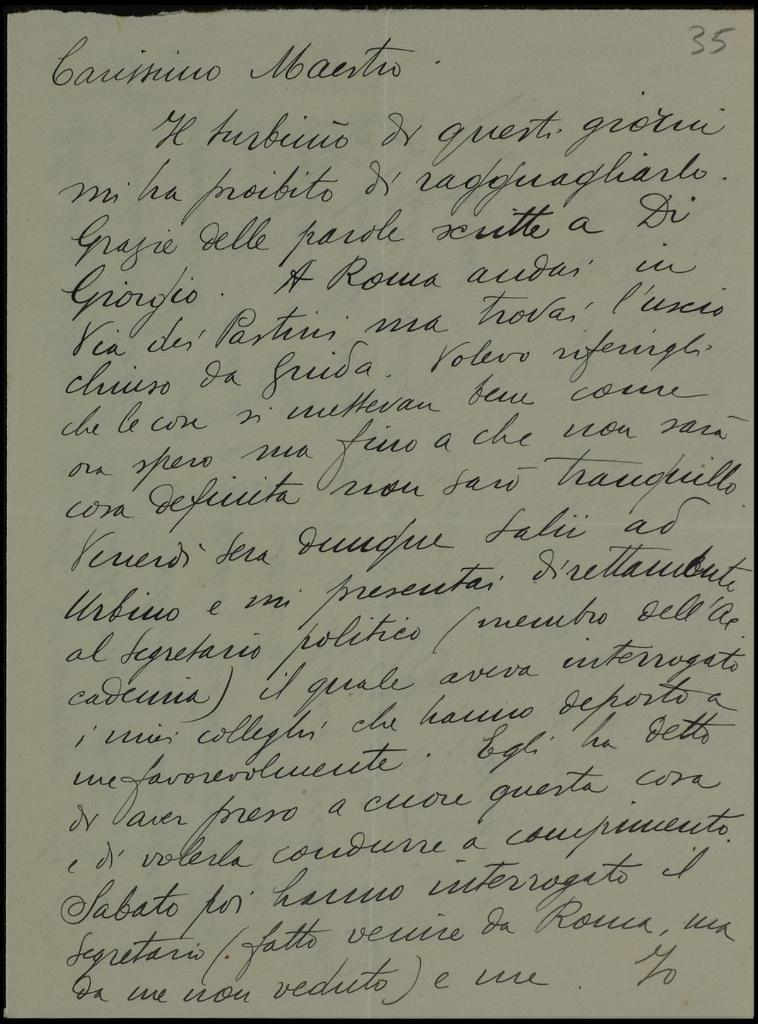 35
Carissimo Maestro.
Il turbinio di questi giorni
mi ha proibito di ragguagliarlo.
Grazie delle parole scritte a Di
Giorgio. A Roma andai in
Via dei Pastini ma trovai l'uscio
chiuso da Guida. Volevo riferirgli
che le cose si mettevan bene come
ora spero ma fino a che non sarà
cosa definita non sarò tranquillo.
Venerdì sera dunque salii ad
Urbino e mi presentai direttamente
al segretario politico (membro dell'Ac
cademia) il quale aveva interrogato
i miei colleghi che hanno deposto a
me favorevolmente. Egli ha detto
di aver preso a cuore questa cosa
e di volerla condurre a compimento.
Sabato poi hanno interrogato il
segretario (fatto venire da Roma, ma
da me non veduto) e me. Io